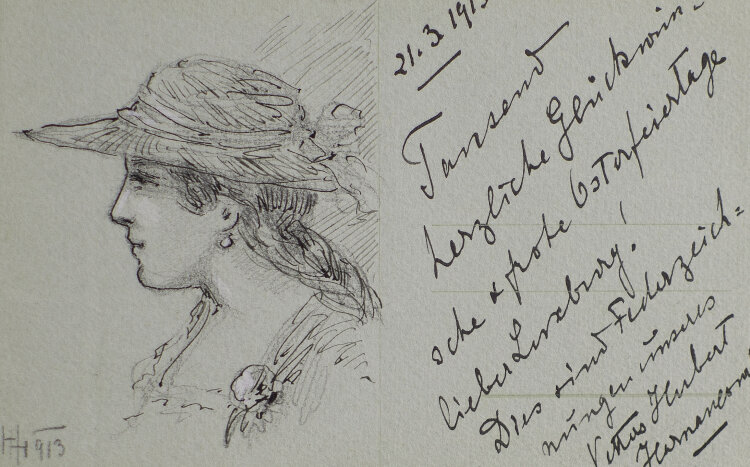 21. 3. 1913
Tausend
herzliche Glückwün-
sche & frohe Osterfeiertage
lieber
Dies sind Federzeich=
nungen unseres
Herbert
H 1913